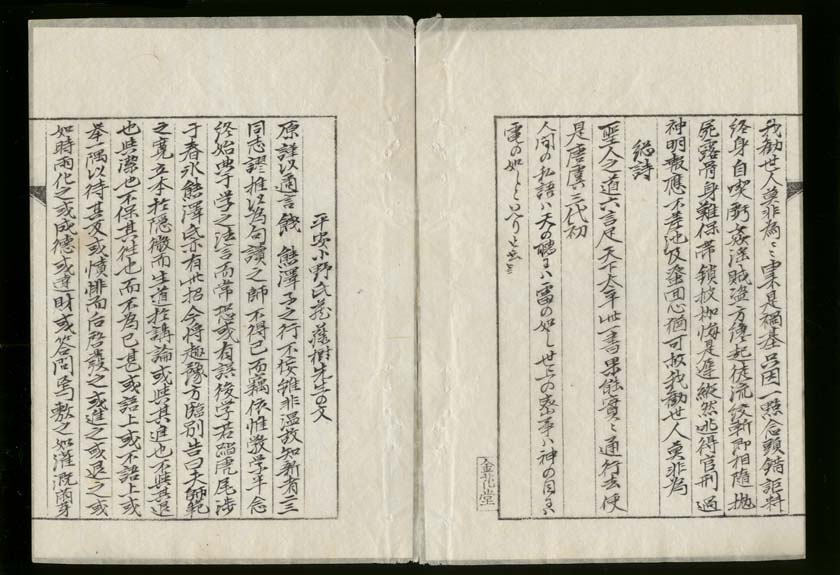 我勸世人莫非為〻〻果是禍基只因一點念頭錯詎料
終身自喫虧姦淫賊盜方纔起徒流絞斬即相隨拋
屍露骨身難保帶鎖披枷悔是遲縱然逃得官刑過
神明報應不差池及蚤回心猶可救我勸世人莫非為
總詩
聖人之道六言足天下太平此書果能實〻通行去便
是唐虞三代初
人間の私語ハ天の聴にハ雷の如し世上の悪事ハ神の目にハ
電の如しといへり
金花堂
平安小野氏蔵藤樹先生の文
原謹以通言餞 熊澤子之行不按雖非温故知新者三
同志謬推以為句讀之師不得已而竊依惟斅学半念
終始典于学之法言而常恐或有誤後学若蹈虎尾涉
于春氷熊澤氏亦有此招今將趣豫方臨別告曰大師範
之寛立本於隱微而生道於講論或與其進也不與其退
也與潔也不保其往也而不為已甚或語上或不語上或
舉一隅以待其反或憤悱而后啓發之或進之或退之或
如時雨化之或成德或達財或答問焉敷之如灌溉